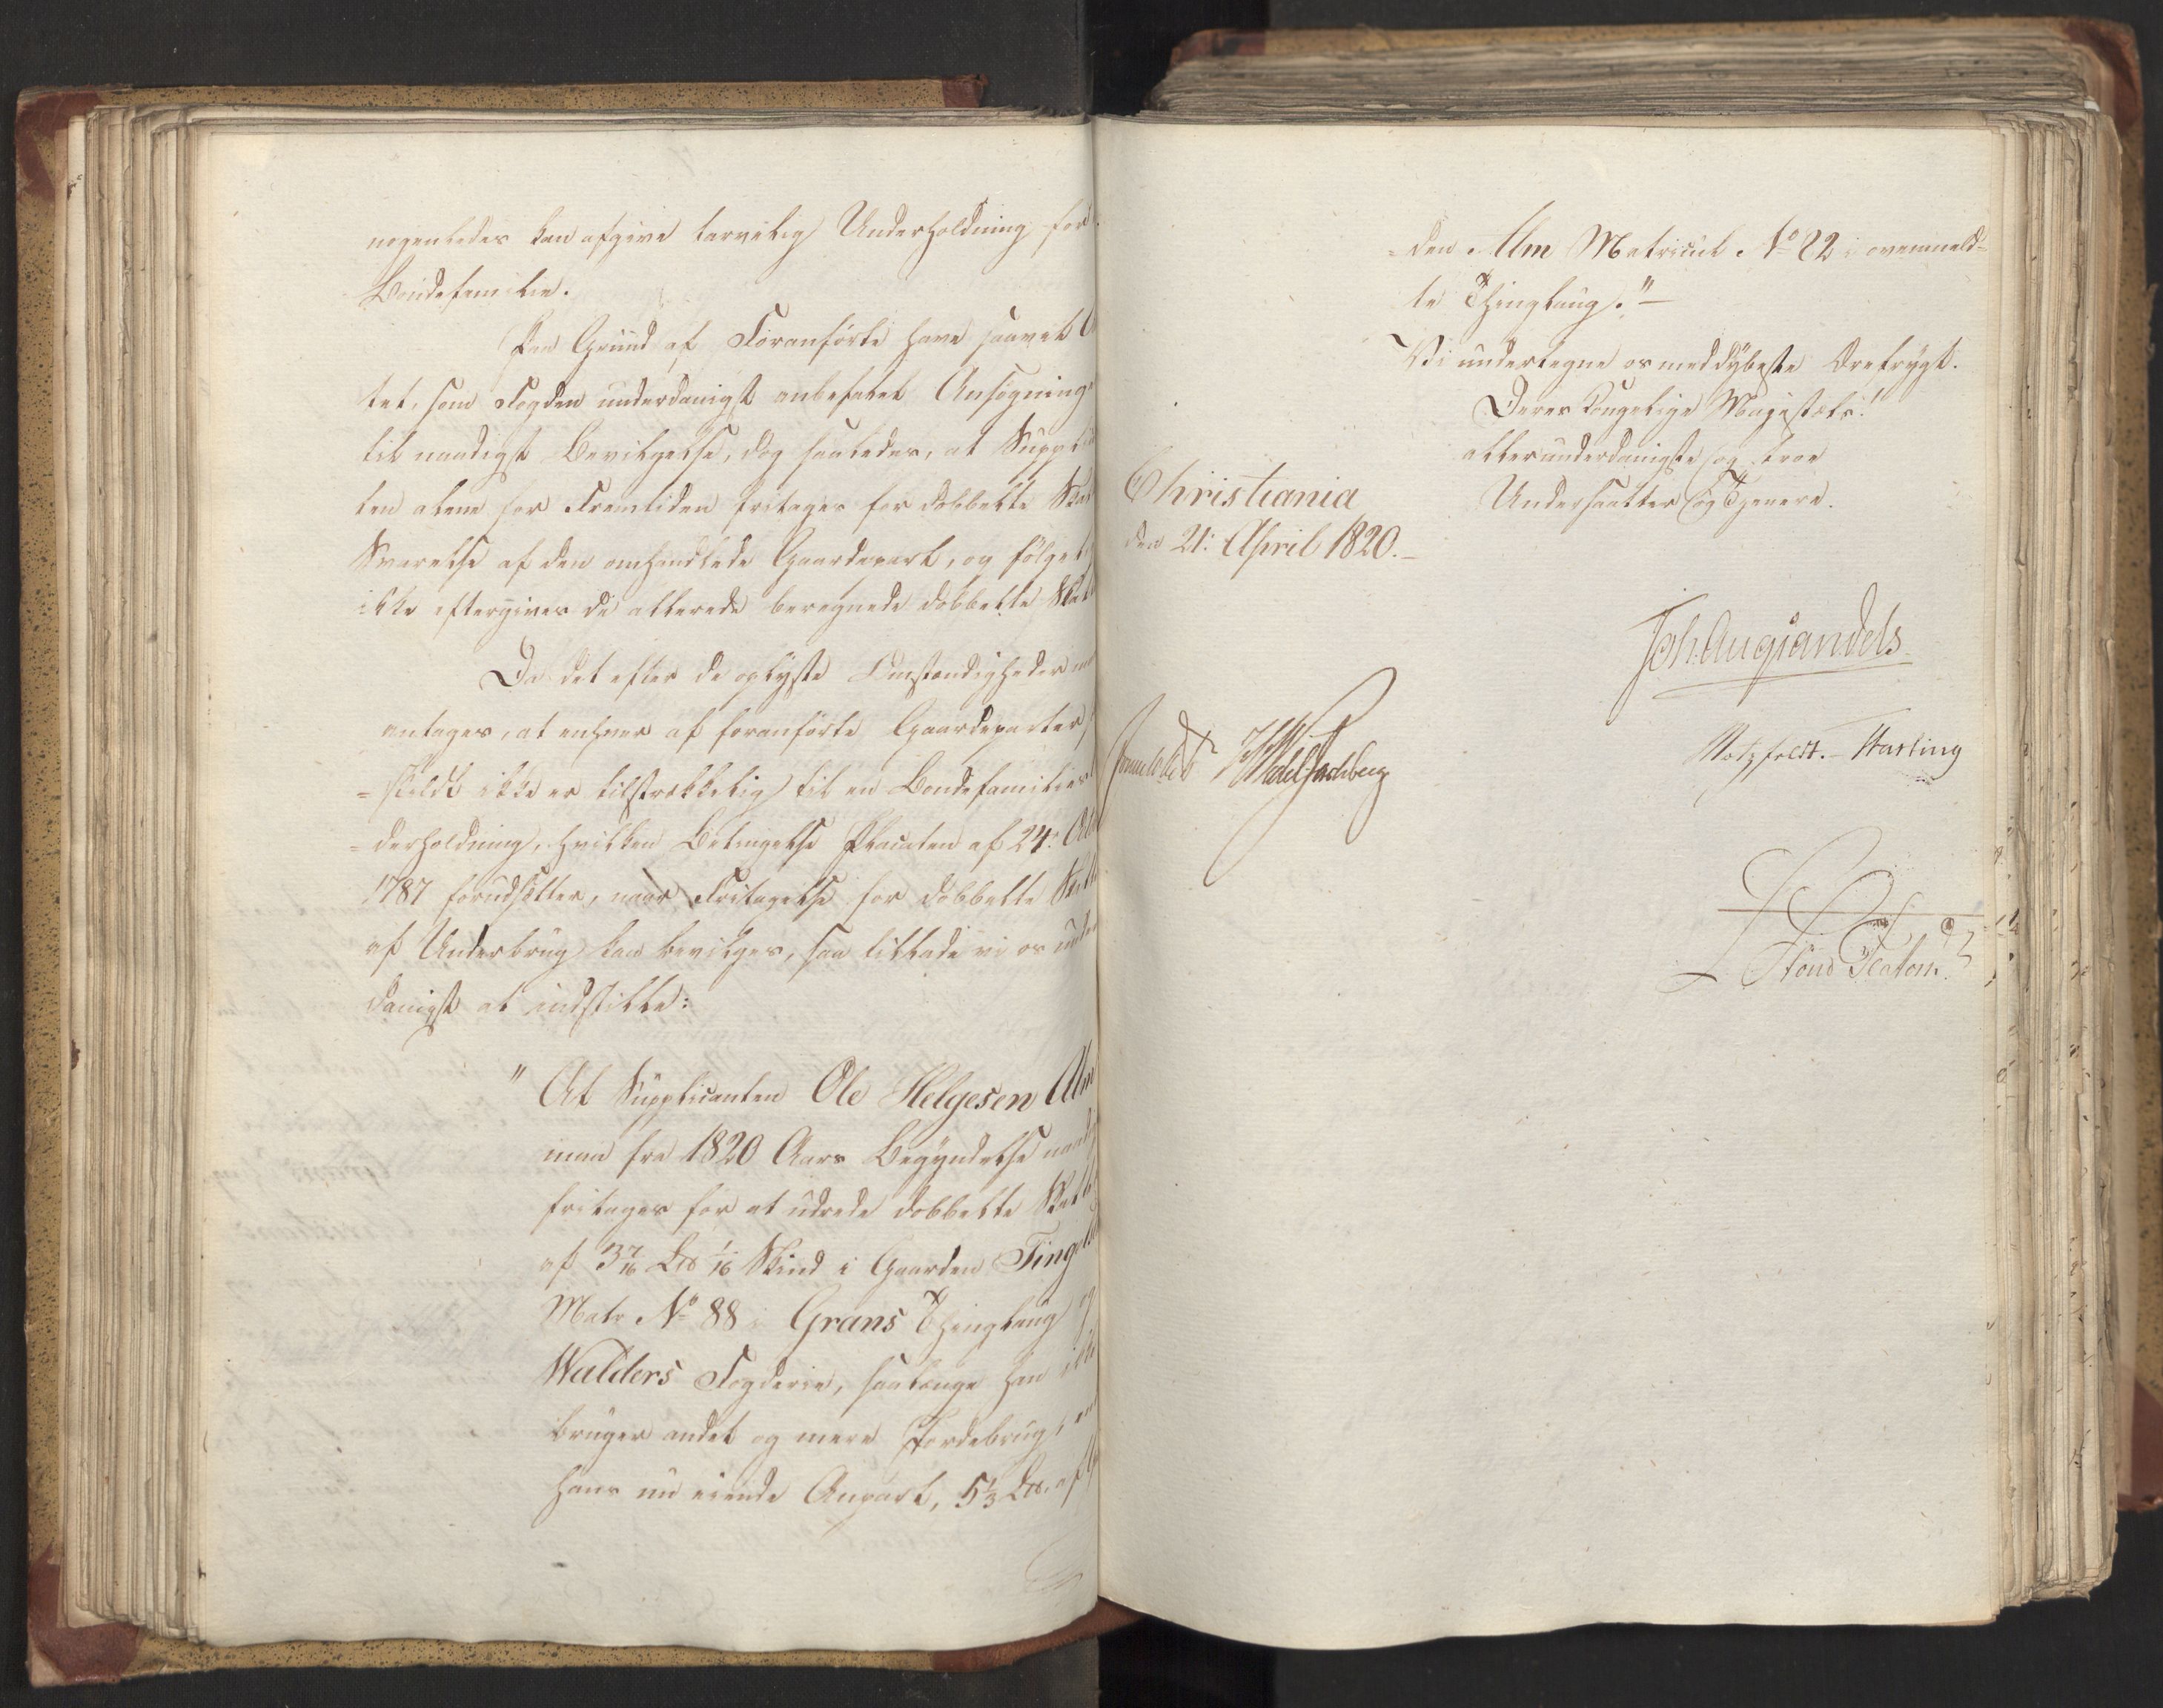 nogenledes kan afgive tarvelig Underholdning for
Bondefamilie.
Paa Grund af Foranførte have saavel
tet, som Fogden underdanigst anbefalet Ansøgning
til naadigst Bevilgelse, dog saaledes, at Suppli
ten alene for Fremtiden fritages for dobbelte Skat
Svarelse af den omhandlede Gaardepart, og følgel
ikke eftergives de allerede beregnede dobbelte Skat
Da det efter de oplyste Omstændigheder
antages, at enhver af foranførte Gaardeparter
skildt ikke er tilstrækkelig til en Bondefamilies
=derholdning, hvilken Betingelse Placaten af 24:
1787 forudsætter, naar Fritagelse for dobbelte
af Underbrug kan bevilges, saa tillade vi os under
danigst at indstille:
" At Supplicanten Ole Helgesen Alm
maa fra 1820 Aars Begyndelse naadi
fritages for at udrede dobbelte Skatte
af 3 7/16 Lod 1/16 Skind i Gaarden Tingel
Matr No 88 i Grans Thinglaug og
Walders Fogderie, saalænge han ikke
bruger andet og mere Jordebrug, end
hans nu eiende Anpart, 5 1/3 Lod. af
=den Alm Matricul No 82 i ovenmeld=
te Thinglaug." —
Vi undertegne os med dybeste Ærefrygt.
Deres Kongelige Majestæts!
allerunderdanigste og troe
Undersaatter og Tjenere.
Christiania
den 21: April 1820. —
Joh. Aug Sandels
Motzfeldt. — Hasting